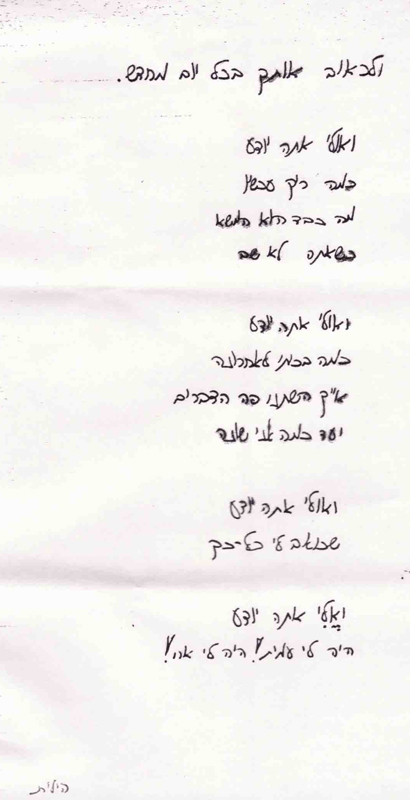 ולראות אותך בכל יום מחדש.
ואולי אתה יודע
כמה ריק עכשיו
מה כבד הוא המשא
כשאתה לא שם
ואולי אתה יודע
כמה בכתי לאחרונה
איך השתנו פה הדברים
ועד כמה אני שונה
ואולי אתה יודע
שכואב לי כל-כך
ואולי אתה יודע
היה לי עמית! היה לי אח!
הילית